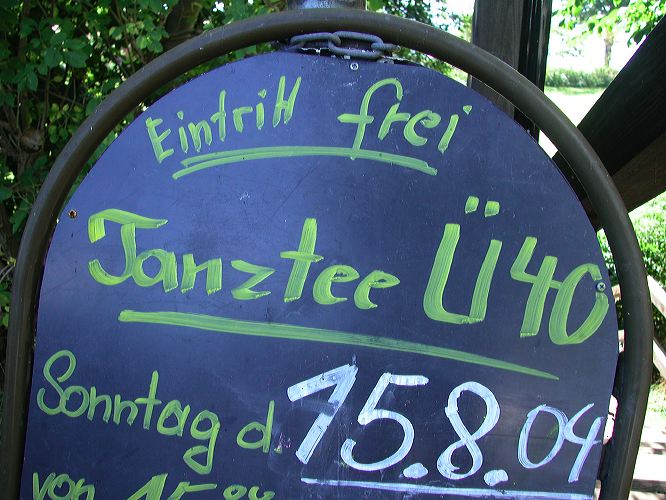 Eintritt frei
Tanztee Ü40
Sonntag d. 15.8.04
von 15